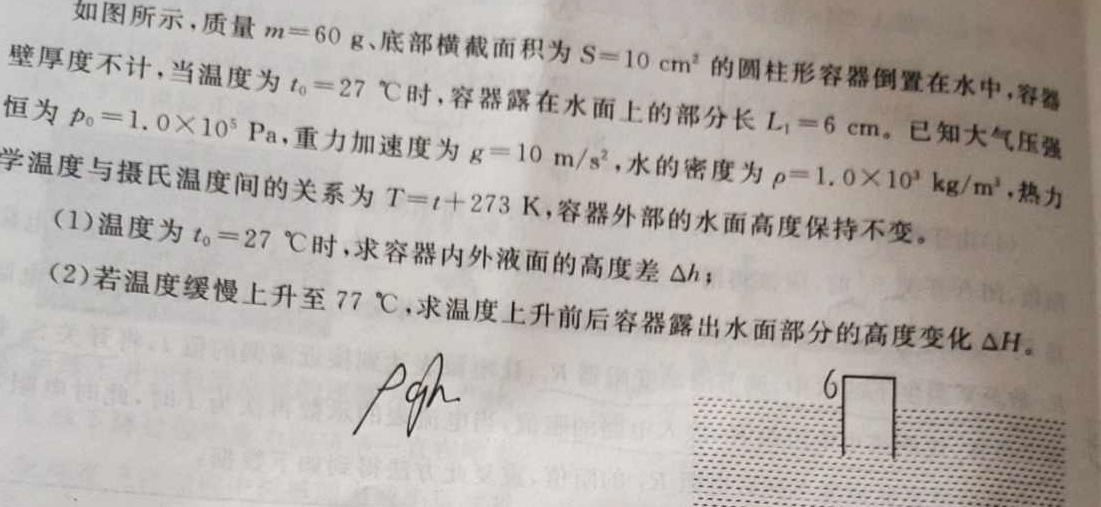 如图所示,质量 m=60 g、底部横截面积为 S=10 cm² 的圆柱形容器倒置在水中,容器
壁厚度不计,当温度为 t₀=27 ℃时,容器露在水面上的部分长 L₁=6 cm。已知大气压强
恒为 p₀=1.0×10⁵ Pa,重力加速度为 g=10 m/s²,水的密度为 ρ=1.0×10³ kg/m³,热力
学温度与摄氏温度间的关系为 T=t+273 K,容器外部的水面高度保持不变。
(1)温度为 t₀=27 ℃时,求容器内外液面的高度差 Δh;
(2)若温度缓慢上升至 77 ℃,求温度上升前后容器露出水面部分的高度变化 ΔH。
ρgh
6